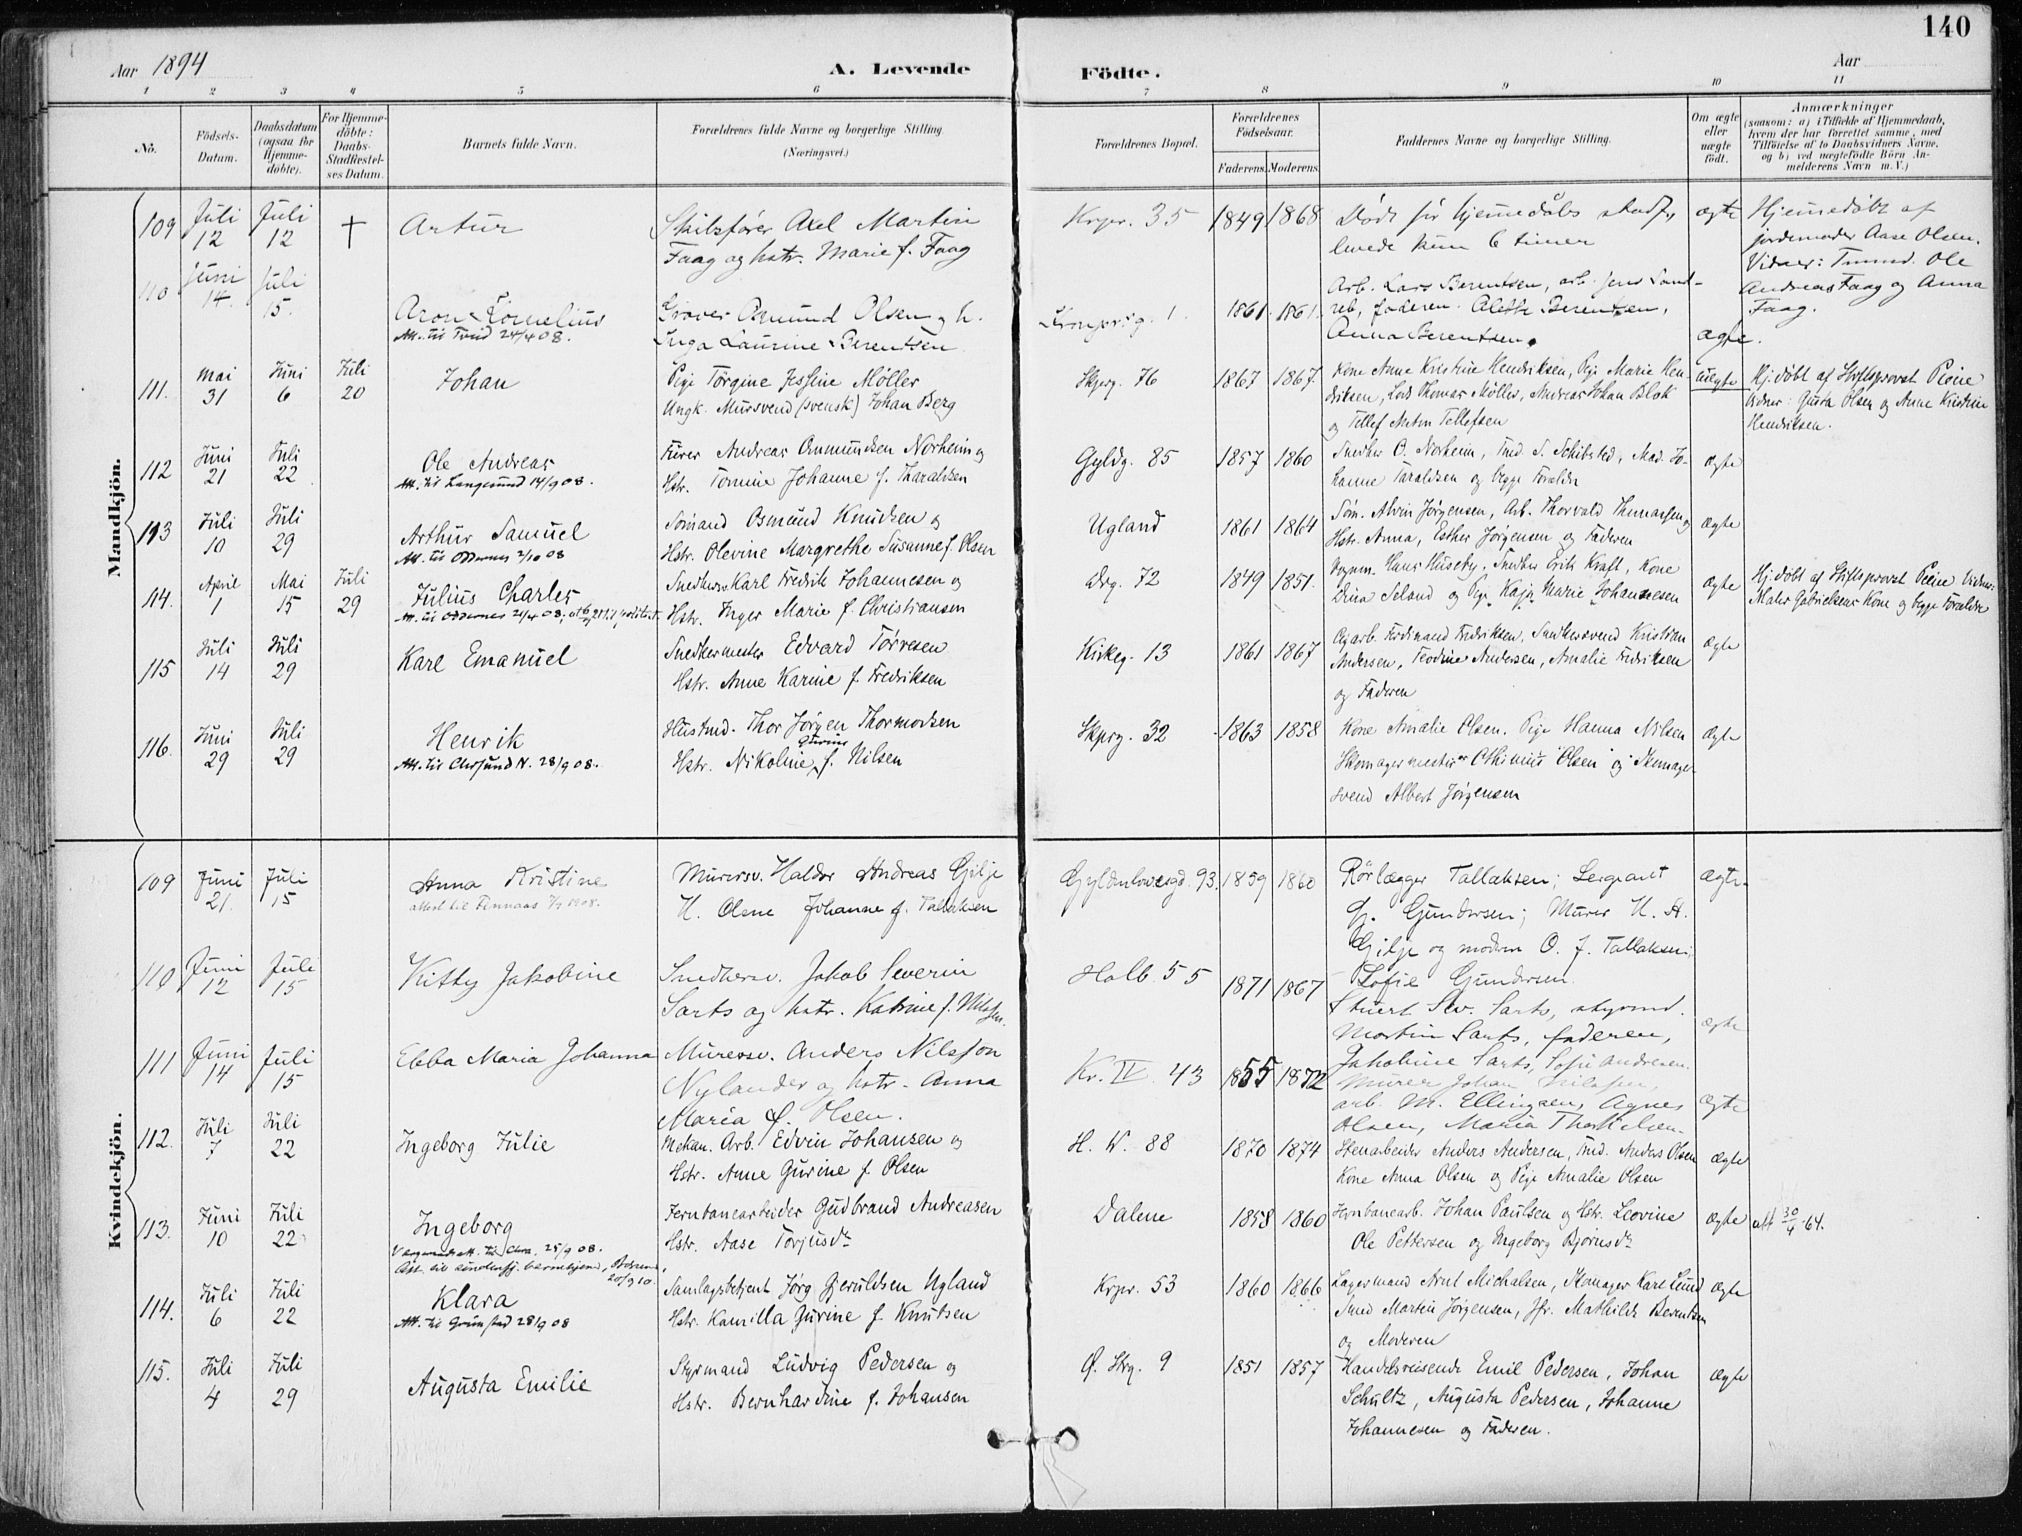 140
Aar 1894
A. Levende
Födte.
Aar
1 2 3 4 5 6 7 8 9 10 11
No.
Födsels-Datum.
Daabsdatum (ogsaa for Hjemme-döbte).
For Hjemme-döbte: Daabs-Stadfæstel-ses Datum.
Barnets fulde Navn.
Forældrenes fulde Navne og borgerlige Stilling (Næringsvei.)
Forældrenes Bopæl.
Forældrenes Födselsaar.
Faderens. Moderens.
Faddernes Navne og borgerlige Stilling.
Om ægte eller uægte födt.
Anmærkninger
(saasom: a) i Tilfælde af Hjemmedaab,
hvem der har forrettet samme, med
Tilföielse af to Daabsvidners Navne,
og b) ved uægtefödte Börn An-
melderens Navn m. V.)
Mandkjön.
109 Juli 12 Juli 12 † Artur
Skibsfører Axel Martin
Faag og hstr. Marie f. Faag
Krpr. 35 1849 1868
Döde för hjemmedåbs stadf.,
levede kun 6 timer
ægte
Hjemmedöbt af
jordemoder Aase Olsen.
Vidner: Tmmd. Ole
Andreas Faag og Anna
Faag.
110 Juni 14. Juli 15. Aron Kornelius
Att. til Tveid 24/4 08.
Graver Asmund Olsen og h.
Inga Laurine Berentsen
Kronprg. 1. 1861. 1861.
Arb. Lars Berentsen, arb. Jens Sand-
reb, faderen. Alette Berentsen,
Anna Berentsen.
ægte.
111. Mai 31 Juni 6 Juli 20 Johan
Pige Törgine Jessine Møller
Ungk. Mursvend (svensk) Johan Berg
Skprg. 76 1867 1867.
Kone Anne Kristine Hendriksen, Pige Marie Hen-
driksen, Lods Thomas Møller, Andreas Johan Blok
og Tellef Anton Tellefsen
uægte
Hj. döbt af Stiftsprovst Peine
Vidner: Gusta Olsen og Anne Kristine
Hendriksen.
112 Juni 21 Juli 22 Ole Andreas
Att. til Langesund 14/9 08.
Furer Andreas Osmundsen Norheim og
Hstr. Tomine Johanne f. Tharaldsen
Gyldg. 85 1857 1860
Snedker O. Norheim, Tmd. S. Schibsted, Mad. Jo-
hanne Taraldsen og begge Forældre
ægte
113 Juli 10 Juli 29 Arthur Samuel
Att. til Oddernes 2/10 08
Sömand Osmund Knudsen og
Hstr. Olevine Margrethe Susanne f. Olsen
Ugland 1861 1864
Söm. Alvin Jørgensen, Arb. Thorvald Thomassen og
Hstr. Anna, Esther Jørgensen og Faderen
ægte
114. April 1 Mai 15 Juli 29 Julius Charles
Att. til Oddernes 21/4 08,
Snedkersv. Karl Fredrik Johannesen og
Hstr. Inger Marie f. Christiansen
Drg. 72 1849 1851.
Vognm. Hans Huseby, Snedker Erik Kraft, Kone
Dina Seland og Pige Kaja Marie Johannesen
ægte
Hj. döbt af Stiftsprovst Peine Vidner:
Maler Gabrielsens Kone og begge Forældre
115 Juli 14 Juli 29 Karl Emanuel
Snedkermester Edvard Törresen
Hstr. Anne Karine f. Fredriksen
Kirkeg. 13 1861 1867
Cigarb. Ferdinand Fredriksen, Snedkersvend Kristian
Andersen, Teodine Andersen, Amalie Fredriksen
og Faderen
ægte
116. Juni 29 Juli 29 Henrik
Att. til Chrsund N. 28/9 08.
Hustmd. Thor Jörgen Thormodsen
Hstr. Nikoline Gurine f. Nilsen
Skprg. 32 1863 1858
Kone Amalie Olsen. Pige Hanna Nilsen
Skomagermester Othinius Olsen og Skomager-
svend Albert Jørgensen
ægte
Kvindekjön.
109 Juni 21. Juli 15 Anna Kristine
attest til Finnaas 7/7 1908.
Murersv. Haldor Andreas Gilje
H. Olene Johanne f. Tallaksen
Gyldenlövesgd. 93. 1859 1860
Rörlægger Tallaksen; Sergeant
Gj. Gundersen; Murer H. A.
Gilje og modern O. J. Tallaksen;
Sofie Gundersen.
ægte.
110 Juni 12 Juli 15 Kitty Jakobine
Snedkersv. Jakob Severin
Sarts og hstr. Katrine f. Nilssen.
Holb. 55 1871 1867
Stuert Sev. Sarts, styrmd.
Martin Sarts, faderen,
Jakobine Sarts, Sofie Andresen.
ægte
111 Juni 14 Juli 15 Ebba Maria Johanna
Murersv. Anders Nilsson
Nylander og hstr. Anna
Maria f. Olsen.
Kr. IV. 43 1855 1872
Murer Johan Nilssen,
arb. M. Ellingsen, Agnes
Olsen, Maria Therkelsen.
ægte
112. Juli 7 Juli 22 Ingeborg Julie
Mekan. Arb. Edvin Johansen og
Hstr. Anne Gurine f. Olsen
H. W. 88 1870 1874
Stenarbeider Anders Andersen, Tmd. Anders Olsen
Kone Anna Olsen og Pige Amalie Olsen
ægte
113. Juni 10 Juli 22 Ingeborg
att. til Chra. 25/9 08.
20/3 10.
Jernbanearbeider Gudbrand Andreasen
Hstr. Aase Torjusdr
Dalene 1858 1860
Jernbanearb. Johan Paulsen og Hstr. Leovine
Ole Pettersen og Ingeborg Bjornsdr
ægte
att 30/4-64.
114. Juli 6 Juli 22 Klara
Att. til Grimstad 28/9 08
Samlagsbetjent Jørg Gjeruldsen Ugland
Hstr. Kamilla Gurine f. Knutsen
Krpr. 53 1860 1866
Lagermand Arnt Michalsen, Skomager Karl Lund
Smed Martin Jørgensen, Jfr. Mathilde Berentsen
og Moderen
ægte
115. Juli 4 Juli 29 Augusta Emilie
Styrmand Ludvig Pedersen og
Hstr. Bernhardine f. Johansen
Ø. Strg. 9 1851 1857
Handelsreisende Emil Pedersen, Johan
Schultz, Augusta Pedersen, Johanne
Johannesen og Faderen.
ægte